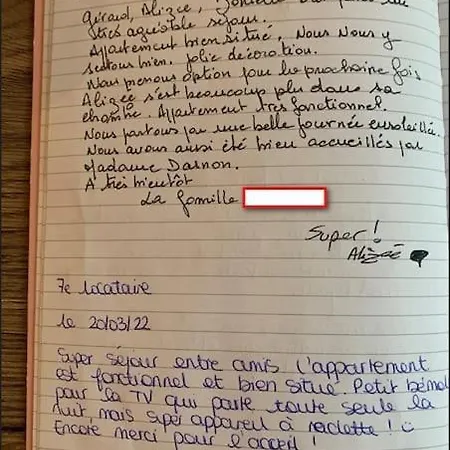 Géraud, Alizée,
très agréable séjour.
Appartement bien situé, Nous Nous y
sentons bien. jolie décoration.
Nous prenons option pour la prochaine fois
Alizée s'est beaucoup plu dans sa
chambre. Appartement très fonctionnel.
Nous partons par une belle journée ensoleillée.
Nous avons aussi été bien accueillis par
Madame Darnon.
A très bientôt
La famille
Super !
Alizée
7e locataire
le 20/03/22
Super séjour entre amis l'appartement
est fonctionnel et bien situé. Petit bémol
pour la TV qui parle toute seule la
nuit, mais super appareil à raclette ! ☺
Encore merci pour l'accueil !